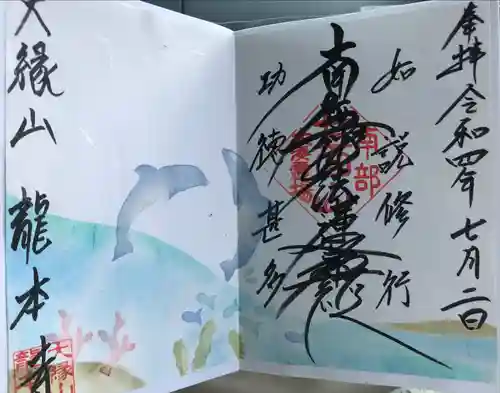 奉拝 令和四年 七月二日
如説修行
南無妙法蓮華経
功徳甚多
大縁山 龍本寺